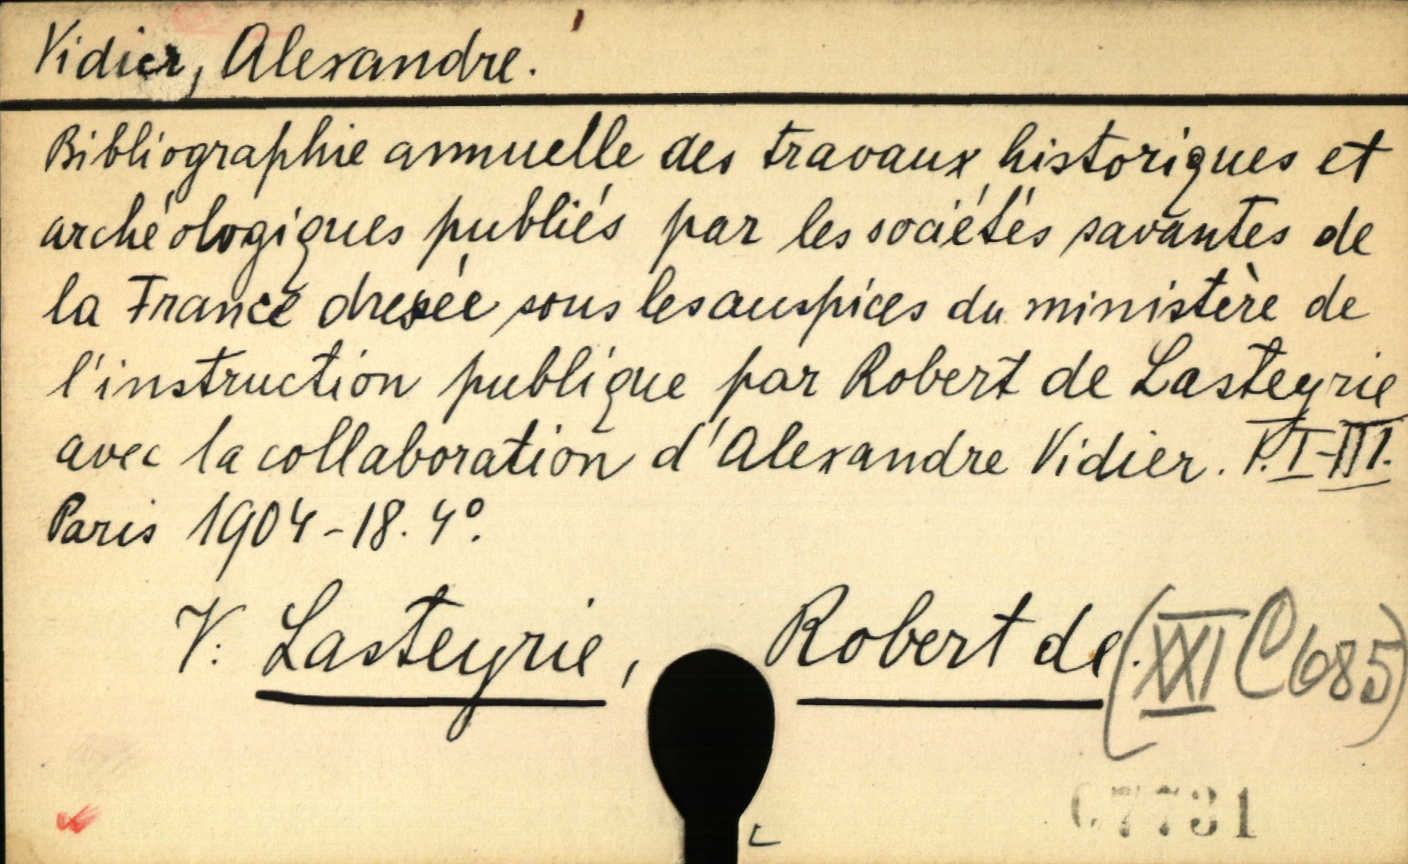 Vidier, Alexandre.
Bibliographie annuelle des travaux historiques et
archéologiques publiés par les sociétés savantes de
la France dressée sous les auspices du ministère de
l'instruction publique par Robert de Lasteyrie
avec la collaboration d'Alexandre Vidier. T. I-III.
Paris 1904-18. 4º.
V: Lasteyrie, Robert de. (XXI C 685)
7731